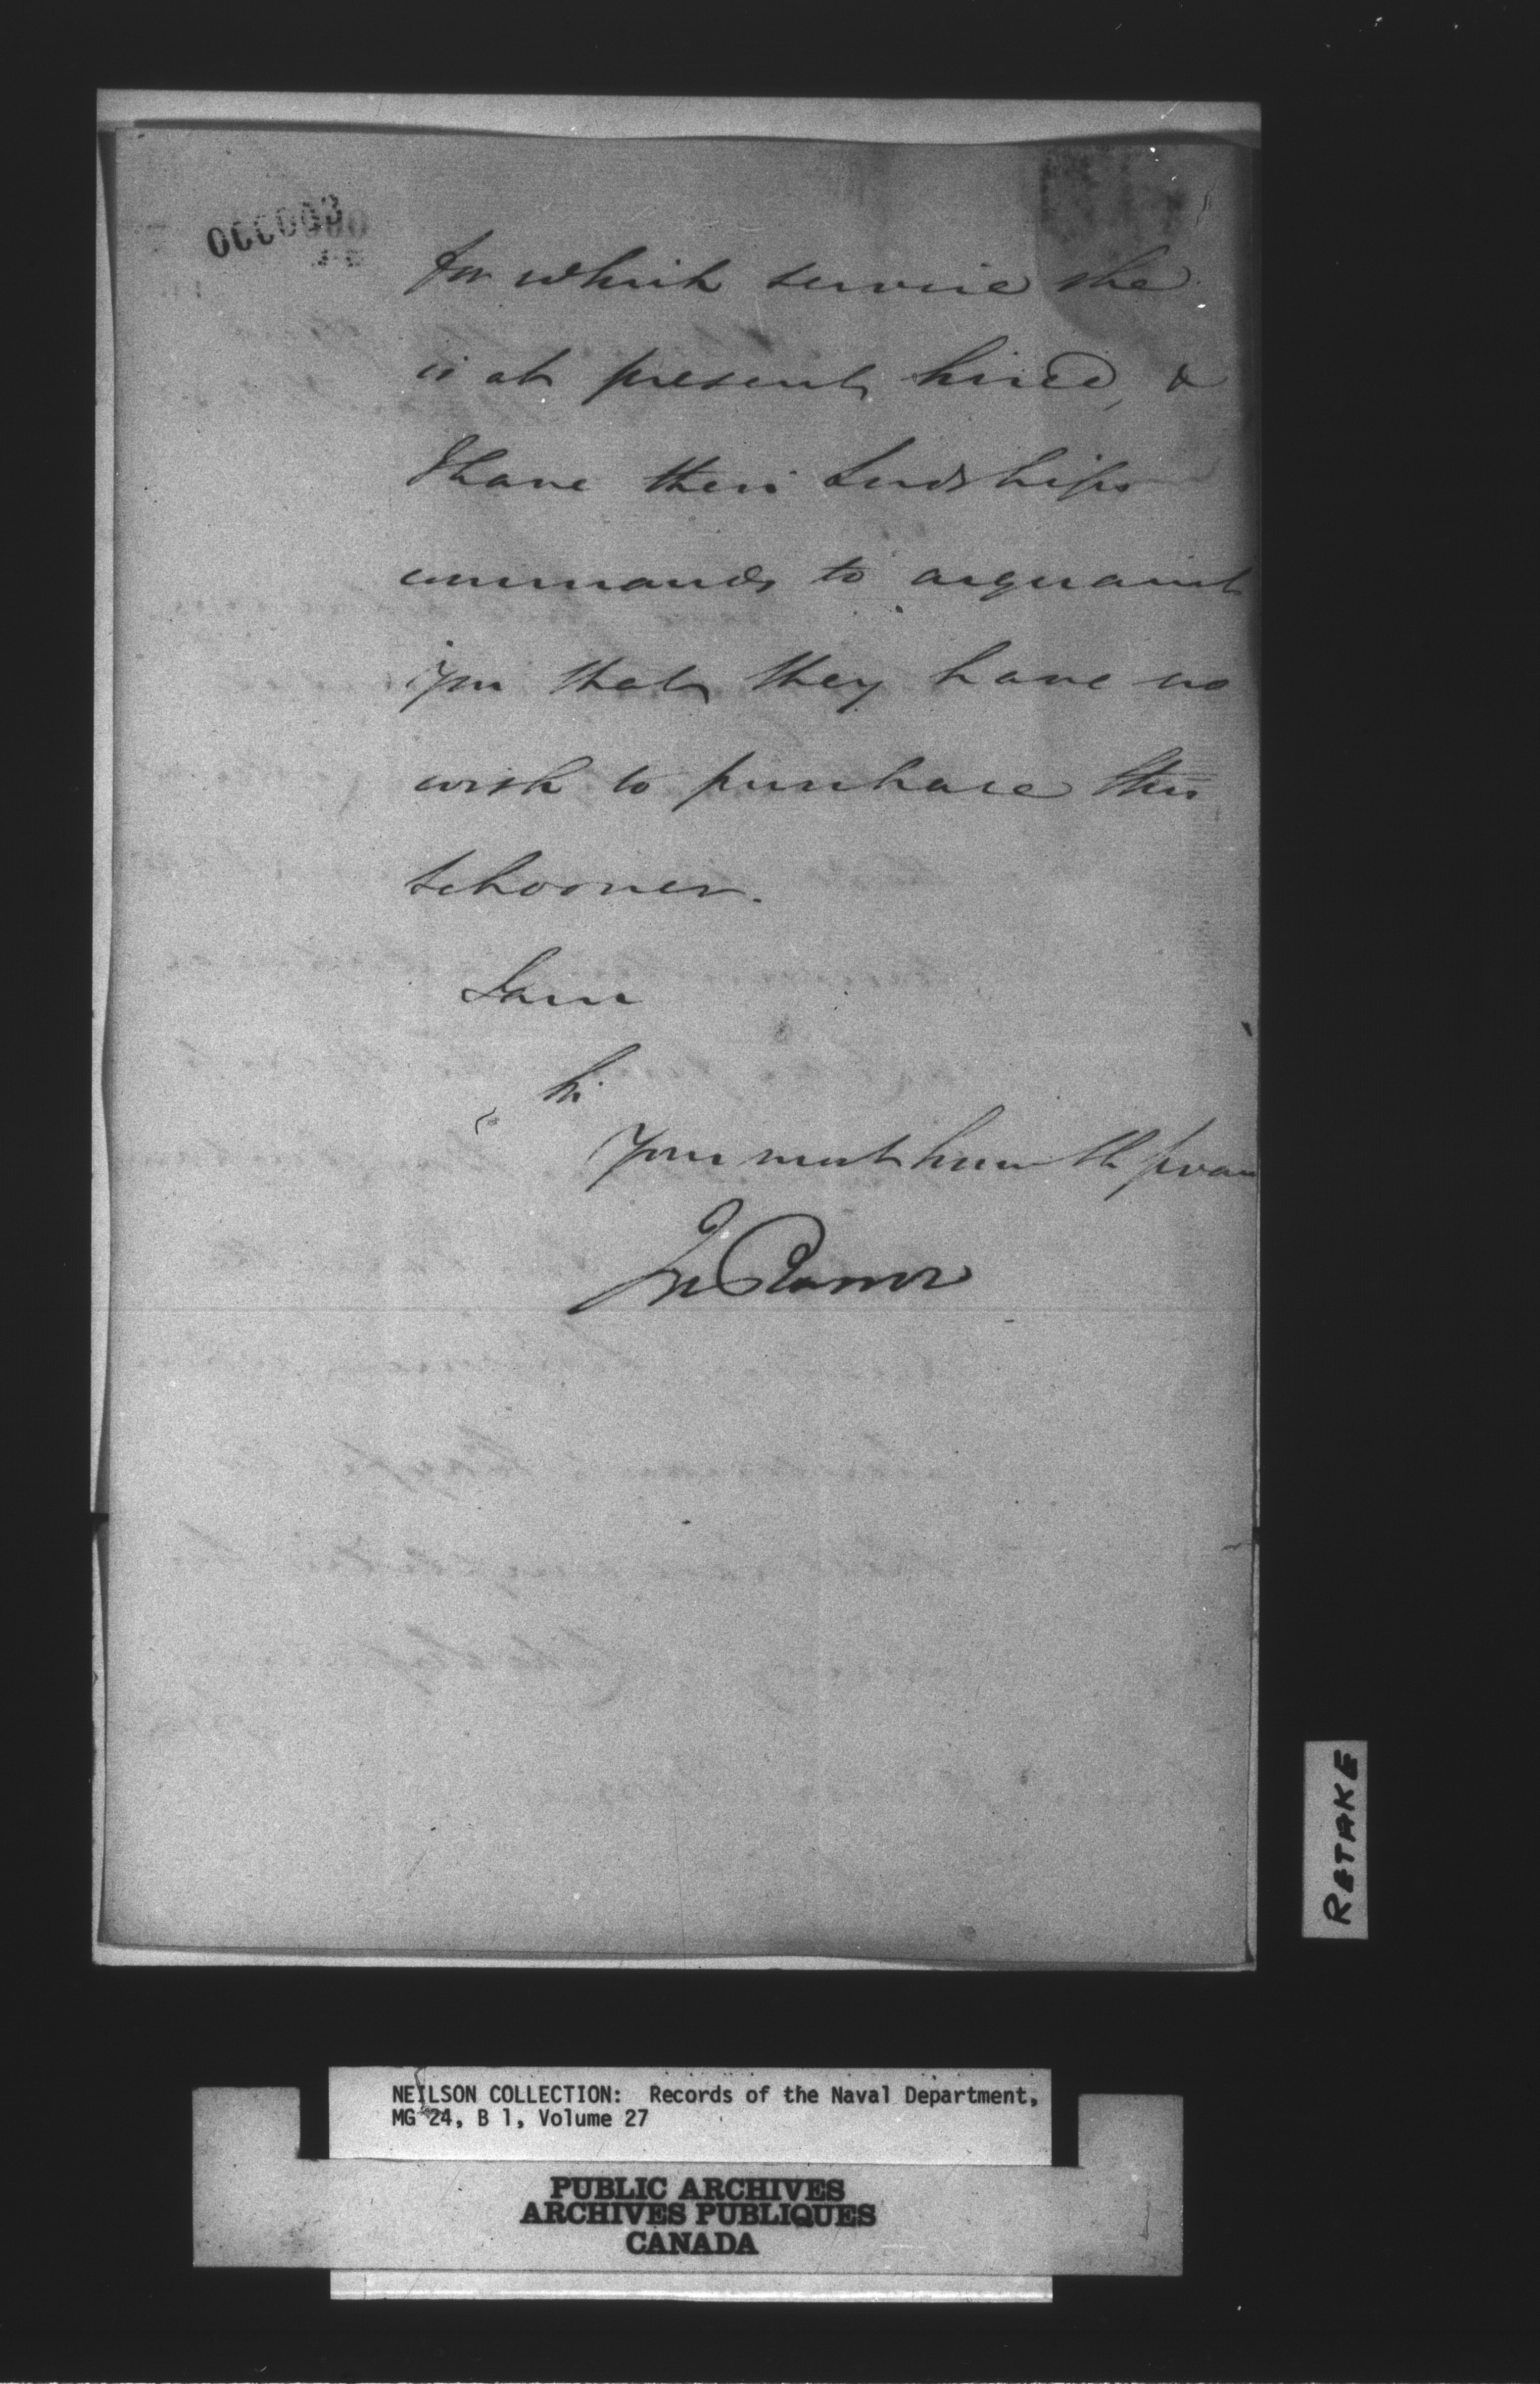 for which service she
is at present hired, &
I have their Lordships
commands to acquaint
you that they have no
wish to purchase this
schooner.
I am
Sir
Your most humble Servan
Jn Barrow
RETAKE
NEILSON COLLECTION: Records of the Naval Department,
MG 24, B 1, Volume 27
PUBLIC ARCHIVES
ARCHIVES PUBLIQUES
CANADA